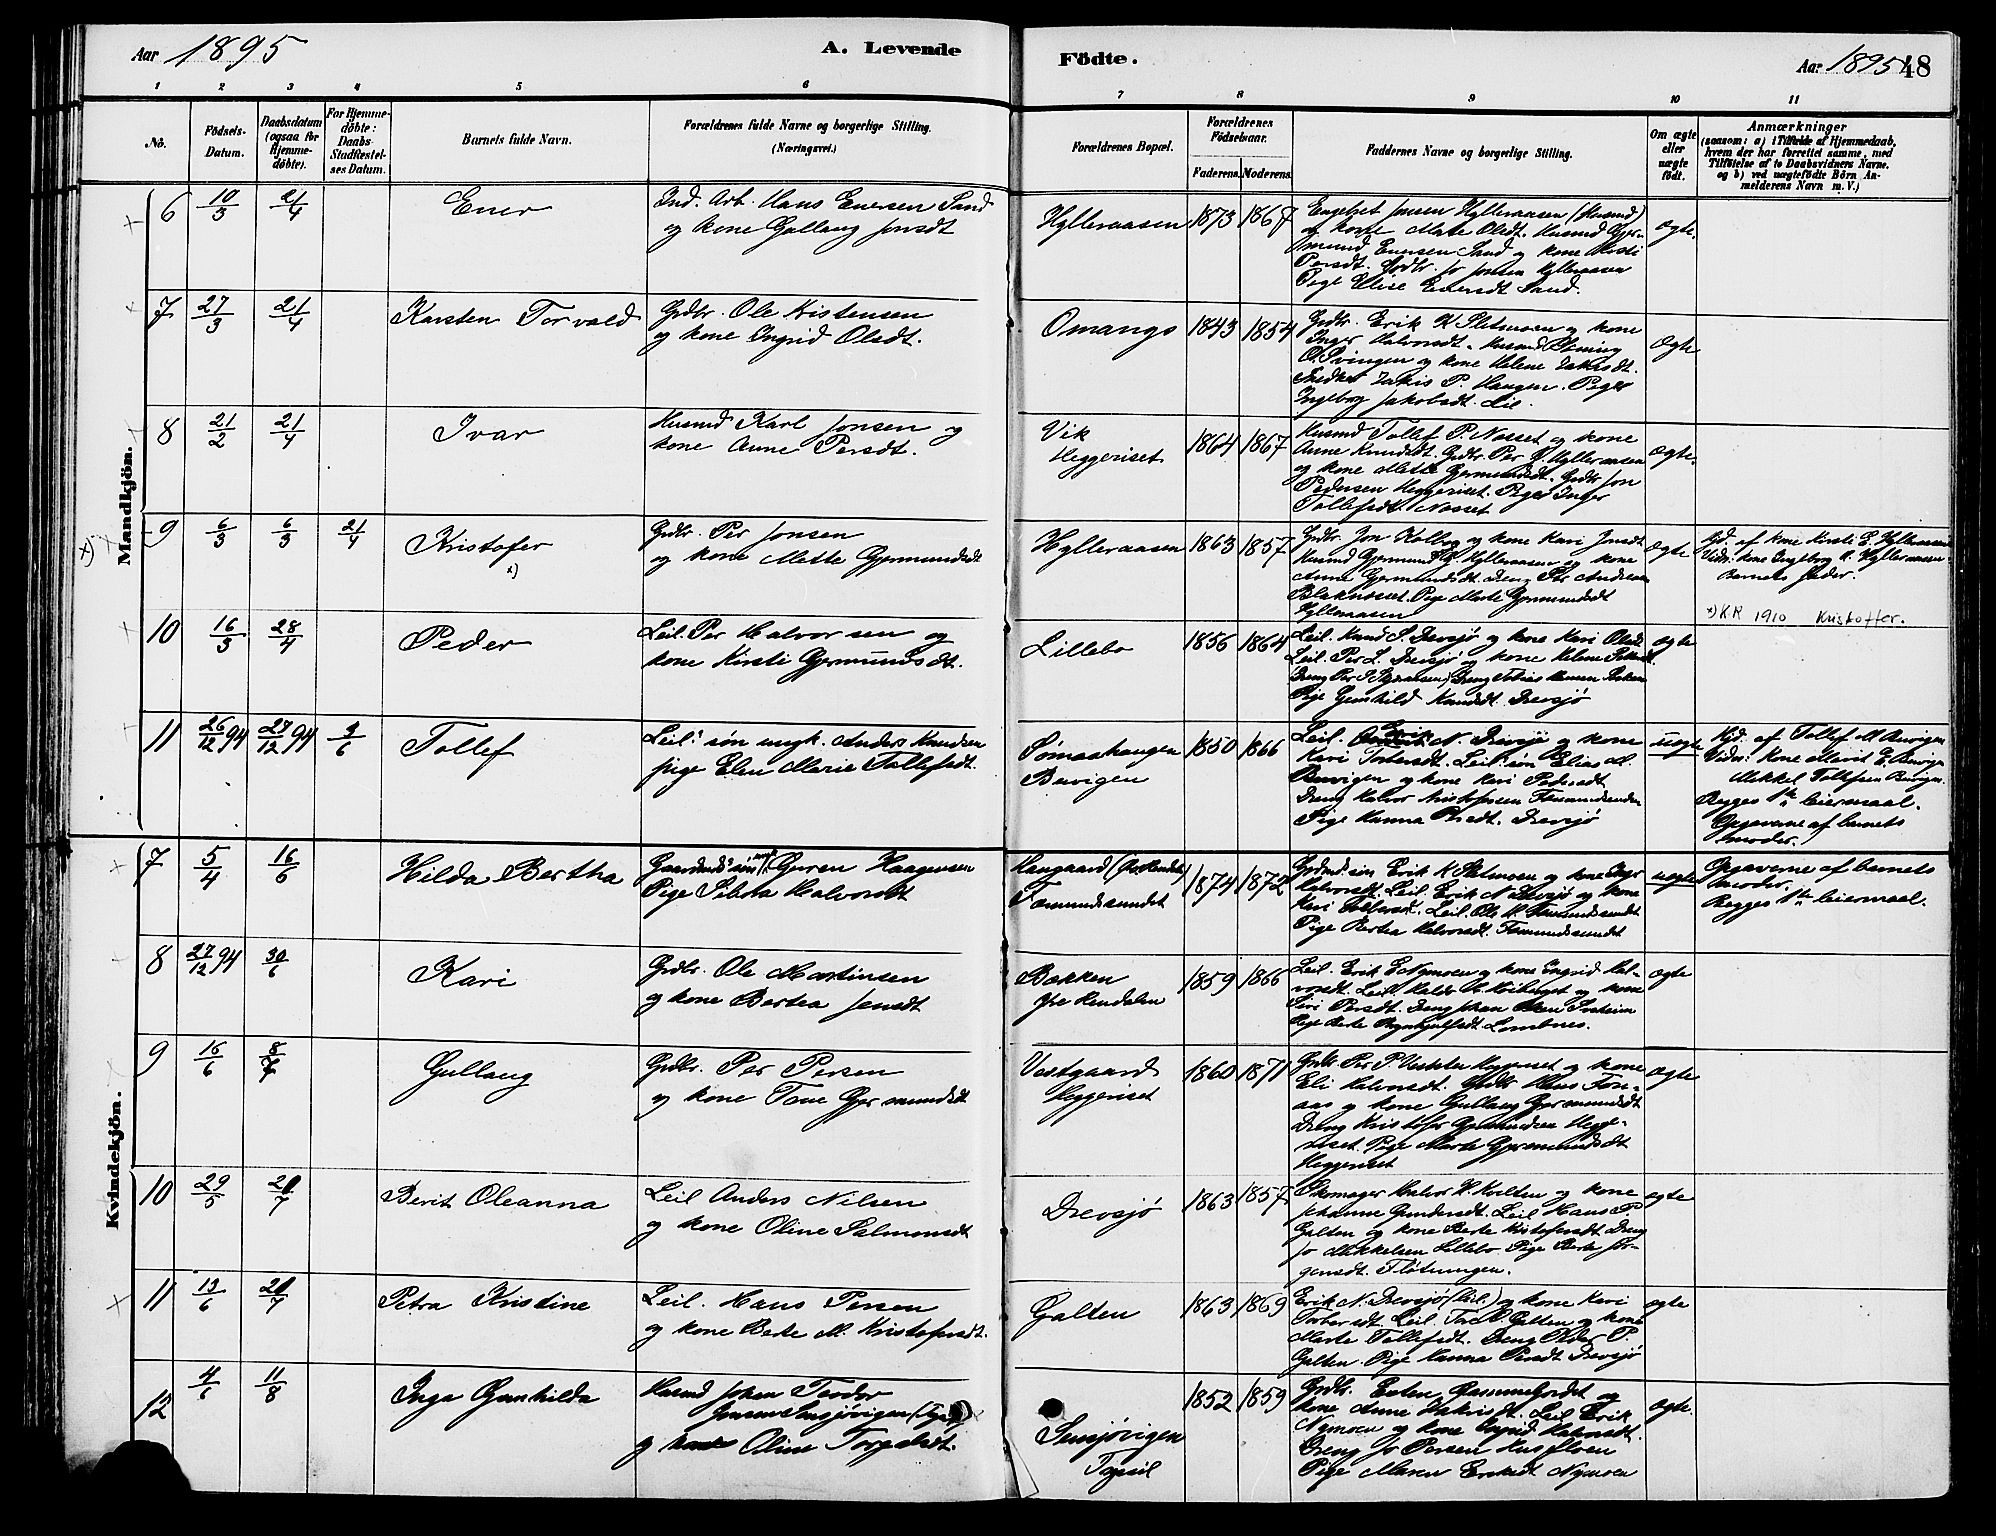 Aar 1895
A. Levende
Födte.
Aar 1895
48
1 2 3 4 5 6 7 8 9 10 11
No.
Födsels-
Datum.
Daabsdatum
(ogsaa for
Hjemme-
döbte).
For Hjemme-
döbte:
Daabs-
Stadfestel-
ses Datum.
Barnets fulde Navn.
Forældrenes fulde Navne og borgerlige Stilling.
(Næringsvei.)
Forældrenes Bopæl.
Forældrenes
Födselsaar.
Faderens. Moderens.
Faddernes Navne og borgerlige Stilling.
Om ægte
eller
uægte
födt.
Anmærkninger
(saasom: a) i Tilfælde af Hjemmedaab,
hvem der har forrettet samme, med
Tilföielse af to Daabsvidners Navne.
og b) ved uægtefödte Börn An-
melderens Navn m. V.)
Mandkjön.
6 10/3 21/4 Ener
Ind. Arb. Hans Enersen Sand
og kone Gullaug Jonsdt
Hylleraasen 1873 1867
Engebret Jonsen Hylleraasen (Husmd)
og kone Marte Olsdt. Husmd Gjer-
mund Enersen Sand og kone Kirsti
Persdt. Grdbr. Jo Jonsen Hylleraasen
Pige Elise Enersdt Sand.
ægte.
7 27/3 21/4 Karsten Torvald
Grdbr. Ole Kristensen
og kone Ingrid Olsdt.
Omangs 1843 1854
Grdbr. Erik K Sletmoen og kone
Inger Halvorsdt. Husmd
O. Svingen og kone Helene
Snedker P. Haugen. Pige
Ingeborg Jakobsdt. Lil.
ægte
8 21/2 21/4 Ivar
Husmd Karl Jonsen og
kone Anne Persdt.
Vik
Heggeriset 1864 1867
Husmd Tollef P. Nosset og kone
Anne Knudsdt. Grdbr. Per Hylleraasen
og kone Mette Gjermundsdt. Grdbr Jon
Pedersen Heggeriset. Pige Inger
Tollefsdt. Nosset
ægte.
x) 9 6/3 6/3 21/4 Kristofer
x)
Grdbr. Per Jonsen
og kone Mette Gjermundsdt
Hylleraasen 1863 1857
Grdbr. Jon Kolbog og kone Kari Jonsdt
Husmd Gjermund Hylleraasen og kone
Anne Gjermundsdt. Dreng Per Andresen
Blaknesset. Pige Marte Gjermundsdt
Hylleraasen
ægte
Hjd. af kone Kirsti E. Hylleraasen
Vidn: kone Ingeborg Hylleraasen
Barnets fader.
x) KR 1910 Kristoffer.
10 16/3 28/4 Peder
Leil. Per Halvorsen og
kone Kirsti Gjermundsdt.
Lillebo 1856 1864
Leil. Knud S. Drevsjø og kone Kari Olsdt
Leil. Per L. Drevsjø og kone Helene
Dreng Per
Pige Gunhild Knudsdt Drevsjø
ægte
11 26/12 94 27/12 94 3/6 Tollef
Leil: søn ungk. Anders Knudsen
pige Elen Marie Tollefsdt.
Sømaahaugen
Buvigen 1850 1866
Leil. Erik N. Drevsjø og kone
Kari Torbersdt. Leil: søn Elias M.
Buvigen og kone Kari Pedersdt
Dreng Halvor Kristofersen Fæmundsenden
Pige Hanna Persdt. Drevsjø
uægte
Hjd. af Tollef M Buvigen
Vidn: Kone Marit E. Buvigen
Mikkel Tollefsen Buvigen
Begges 1ste leiermaal.
Opgaverne af barnets
moder.
Kvindekjön.
7 5/4 16/6 Hilda Bertha
Gaardmds søn ungk. Guren Haagensen
Pige Sebora Halvorsdt
Haugaard
Fæmundssundet 1874 1872
Grdmd.søn Erik K Sletmoen og kone Inger
Halvorsdt. Leil. Erik N Drevsjø og kone
Kari Torbersdt. Leil. Ole Fæmundssundet
Pige Bertea Halvorsdt. Fæmundssundet
uægte
Opgaverne af barnets
moder.
Begges 1ste leiermaal.
8 27/12 94 30/6 Kari
Grdbr. Ole Martinsen
og kone Bertea Jensdt
Bækken
Øvre Rendalen 1859 1866
Leil. Erik E Nymoen og kone Ingrid Hal-
vorsdt. Leil. og kone
Siri Persdt. Dreng Johan
Pige Berte Lombnes.
ægte
9 16/6 8/7 Gullaug
Grdbr. Per Persen
og kone Tone Gjermundsdt
Vestgaard
Heggeriset 1860 1871
Grdbr Per P. Heggeriset og kone
Eli Halvorsdt. Grdbr Hans Fon-
aas og kone Gullaug Gjermundsdt
Dreng Kristofer Gjermundsen Hegge-
riset. Pige Marte Gjermundsdt
Heggeriset
ægte
10 29/5 20/7 Berit Oleanna
Leil Anders Nilsen
og kone Oline Salmonsdt
Drevsjø 1863 1857
Skomager Halvor H. Kvilten og kone
Johanne Gundersdt. Leil Hans P.
Galten og kone Berte Kristofersdt Dreng
Jo Mikkelsen Lillebo. Pige Berte Jør-
gensdt. Fløtningen.
ægte
11 13/6 20/7 Petra Kristine
Leil. Hans Persen
og kone Berte M. Kristofersdt.
Galten 1863 1869
Erik N. Drevsjø (Leil.) og kone Kari
Torbersdt. Leil Galten og kone
Marte Tollefsdt. Dreng Peder P.
Galten. Pige Hanna Persdt Drevsjø
ægte
12 4/6 11/8 Inga Gunhilda
Husmd Johan Teodor
Jensen Sensjøvigen
og kone Oline Torgalsdt.
Sensjøvigen
Trysil 1852 1859
Grdbr. Esten Gammelgordet og
kone Anne Leil Erik
Nymoen og kone Ingrid Halvorsdt.
Dreng Jo Persen Husfloen
Pige Maren Eriksdt Nymoen
ægte.